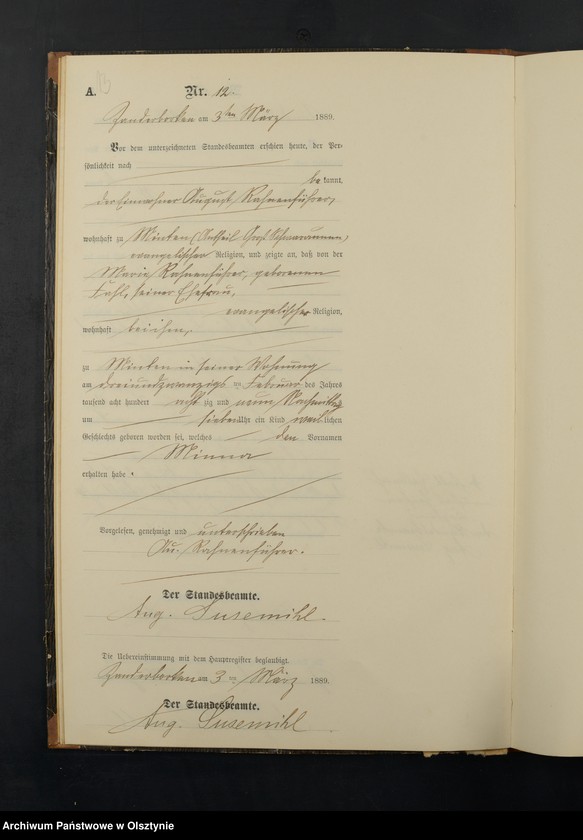 A.
Nr. 12.
am 3ten März 1889.
Vor dem unterzeichneten Standesbeamten erschien heute, der Per-
sönlichkeit nach
be kannt,
der Einwohner August Rahnenführer,
wohnhaft zu Minken (Antheil Groß
evangelischer Religion, und zeigte an, daß von der
Marie Rahnenführer, geborenen
seiner Ehefrau,
evangelischer Religion,
wohnhaft bei ihm,
zu Minken in seiner Wohnung
am dreiundzwanzigs ten Februar des Jahres
tausend acht hundert acht zig und neun Nachmittag
um sieben Uhr ein Kind weib lichen
Geschlechts geboren worden sei, welches den Vornamen
Minna
erhalten habe.
Vorgelesen, genehmigt und unterschrieben
Au. Rahnenführer.
Der Standesbeamte.
Aug. Susemihl.
Die Uebereinstimmung mit dem Hauptregister beglaubigt.
am 3 ten März 1889.
Der Standesbeamte.
Aug. Susemihl
Archiwum Państwowe w Olsztynie